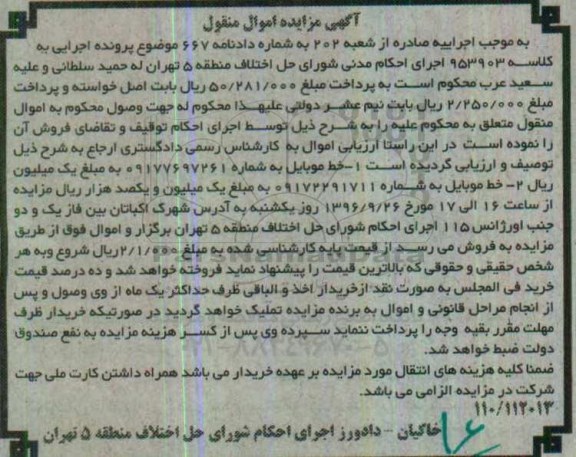 آگهی مزایده اموال منقول
به موجب اجراییه صادره از شعبه ۲۰۲ به شماره دادنامه ۶۶۷ موضوع پرونده اجرایی به
کلاسه ۹۵۳۹۰۳ اجرای احکام مدنی شورای حل اختلاف منطقه ۵ تهران له حمید سلطانی و علیه
سعید عرب محکوم است به پرداخت مبلغ ۵۰/۲۸۱/۰۰۰ ریال بابت اصل خواسته و پرداخت
مبلغ ۲/۲۵۰/۰۰۰ ریال بابت نیم عشر دولتی علیهذا محکوم له جهت وصول محکوم به اموال
منقول متعلق به محکوم علیه را به شرح ذیل توسط اجرای احکام توقیف و تقاضای فروش آن
را نموده است در این راستا ارزیابی اموال به کارشناس رسمی دادگستری ارجاع به شرح ذیل
توصیف و ارزیابی گردیده است ۱-خط موبایل به شماره ۰۹۱۷۷۶۹۷۲۶۱ به مبلغ یک میلیون
ریال ۲- خط موبایل به شماره ۰۹۱۷۲۲۹۱۷۱۱ به مبلغ یک میلیون و یکصد هزار ریال مزایده
از ساعت ۱۶ الی ۱۷ مورخ ۱۳۹۶/۹/۲۶ روز یکشنبه به آدرس شهرک اکباتان بین فاز یک و دو
جنب اورژانس ۱۱۵ اجرای احکام شورای حل اختلاف منطقه ۵ تهران برگزار و اموال فوق از طریق
مزایده به فروش می رسد از قیمت پایه کارشناسی شده به مبلغ ۲/۱/۰۰۰ ریال شروع وبه هر
شخص حقیقی و حقوقی که بالاترین قیمت را پیشنهاد نماید فروخته خواهد شد و ده درصد قیمت
خرید فی المجلس به صورت نقد ازخریدار اخذ و الباقی ظرف حداکثر یک ماه از وی وصول و پس
از انجام مراحل قانونی و اموال به برنده مزایده تملیک خواهد گردید در صورتیکه خریدار ظرف
مهلت مقرر بقیه وجه را پرداخت ننماید سپرده وی پس از کسر هزینه مزایده به نفع صندوق
دولت ضبط خواهد شد.
ضمنا کلیه هزینه های انتقال مورد مزایده بر عهده خریدار می باشد همراه داشتن کارت ملی جهت
شرکت در مزایده الزامی می باشد.
۱۱۰/۱۱۲۰۱۳
خاکیان - دادورز اجرای احکام شورای حل اختلاف منطقه ۵ تهران